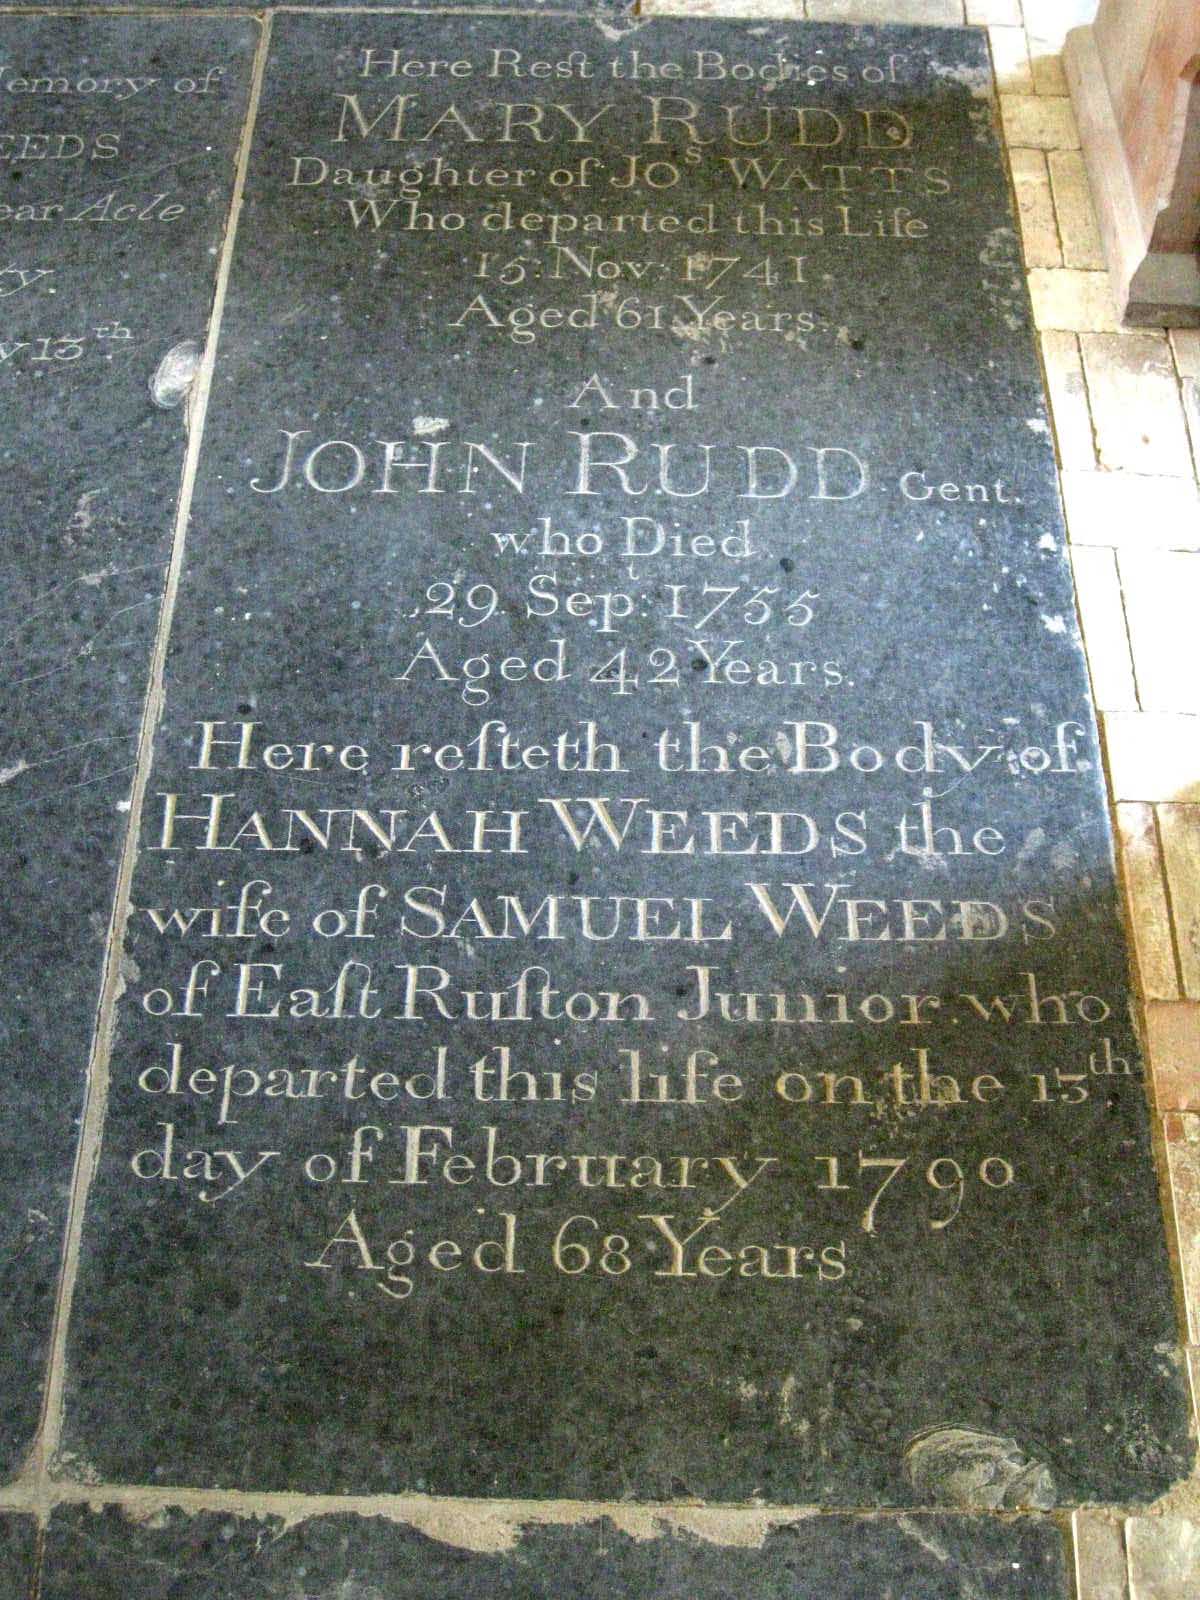 emory of
EEDS
ear Acle
y.
y 13th
Here Reſt the Bodies of
MARY RUDD
Daughter of Jos WATTS
Who departed this Liſe
15 : Nov : 1741
Aged 61 Years
And
JOHN RUDD Gent.
who Died
29 Sept : 1755
Aged 42 Years.
Here reſteth the Body of
HANNAH WEEDS the
wife of SAMUEL WEEDS
of Eaſt Ruſton Junior who
departed this life on the 13th
day of February 1790
Aged 68 Years